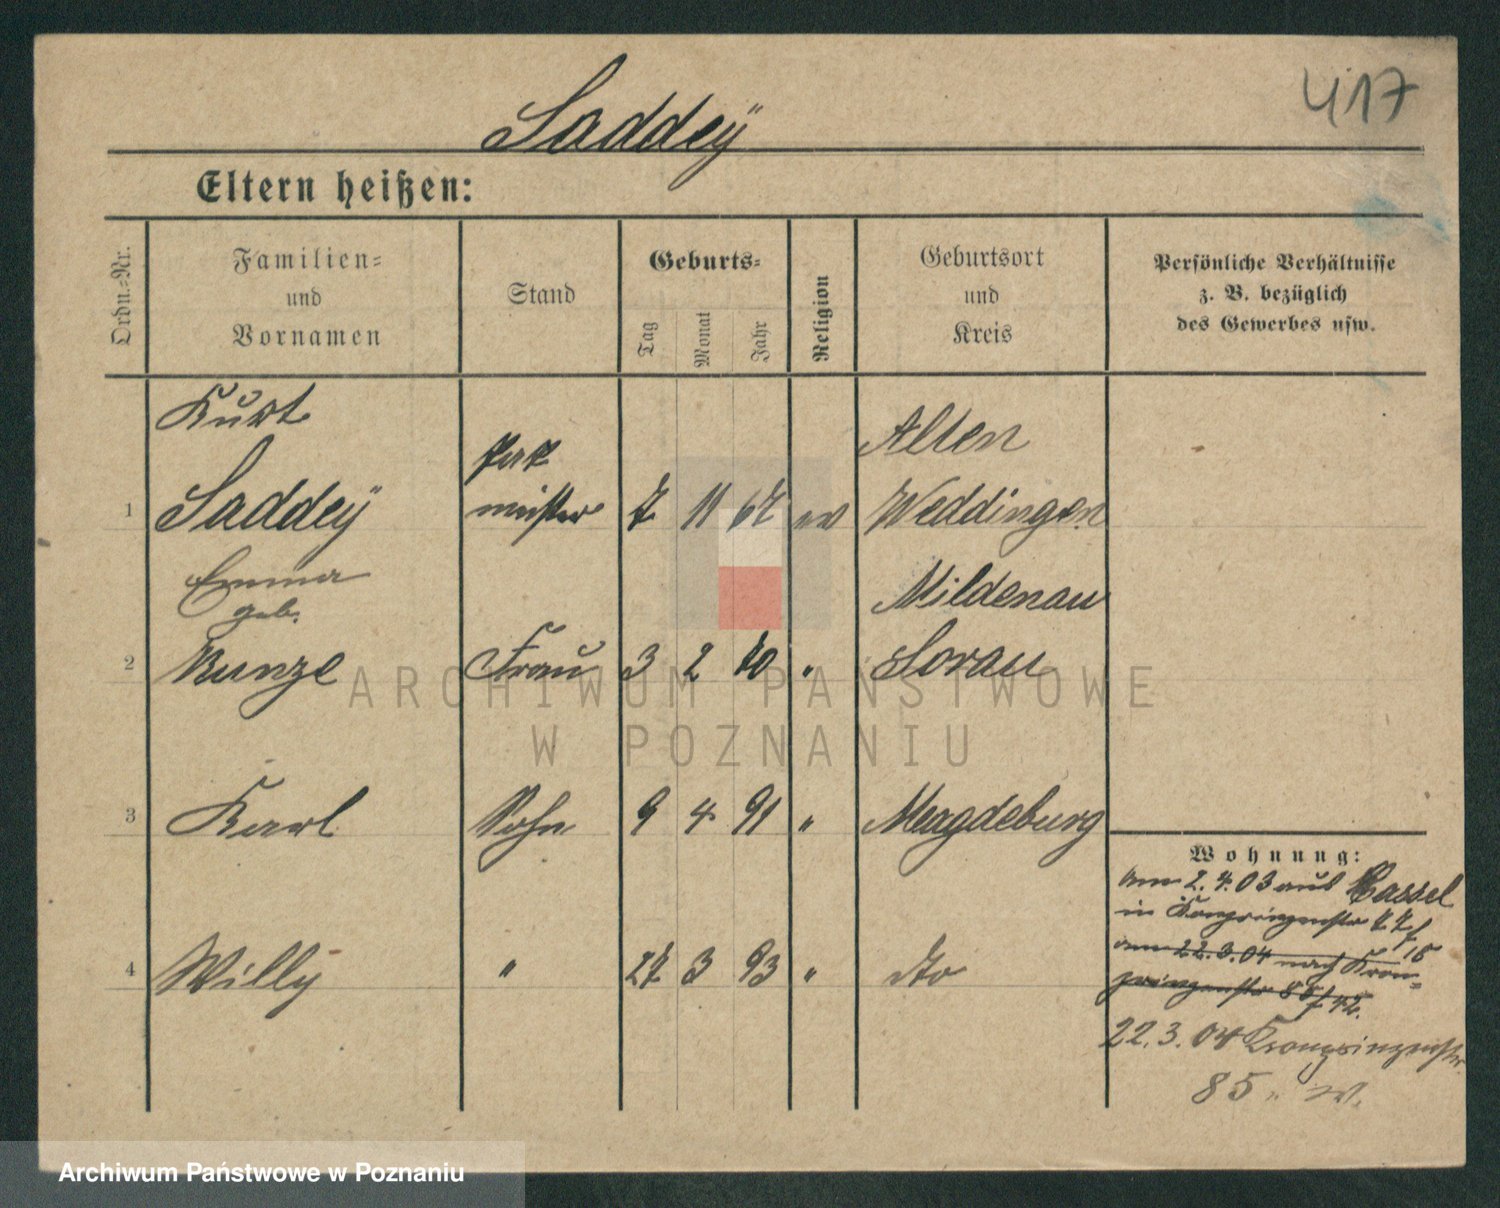 417
Saddeÿ
Eltern heißen:
Ordn.-Nr.
Familien-
und
Vornamen
Stand
Geburts-
Tag
Monat
Jahr
Religion
Geburtsort
und
Kreis
Persönliche Verhältnisse
z. B. bezüglich
des Gewerbes usw.
Kurt Alten
1 Saddeÿ meister 7 11 67 ev Weddingen
Emma Mildenau
geb.
2 Kunze Frau 3 2 70 " Sorau
3 Karl Sohn 9 4 91 " Magdeburg
4 Willy " 27 3 93 " dto
Wohnung:
am 2.4.03 aus Cassel
in Kronprinzenstr
am 22.3.04 nach Kron-
prinzenstr 85
22.3.04 Kronprinzenstr.
85
ARCHIWUM PAŃSTWOWE
W POZNANIU
Archiwum Państwowe w Poznaniu